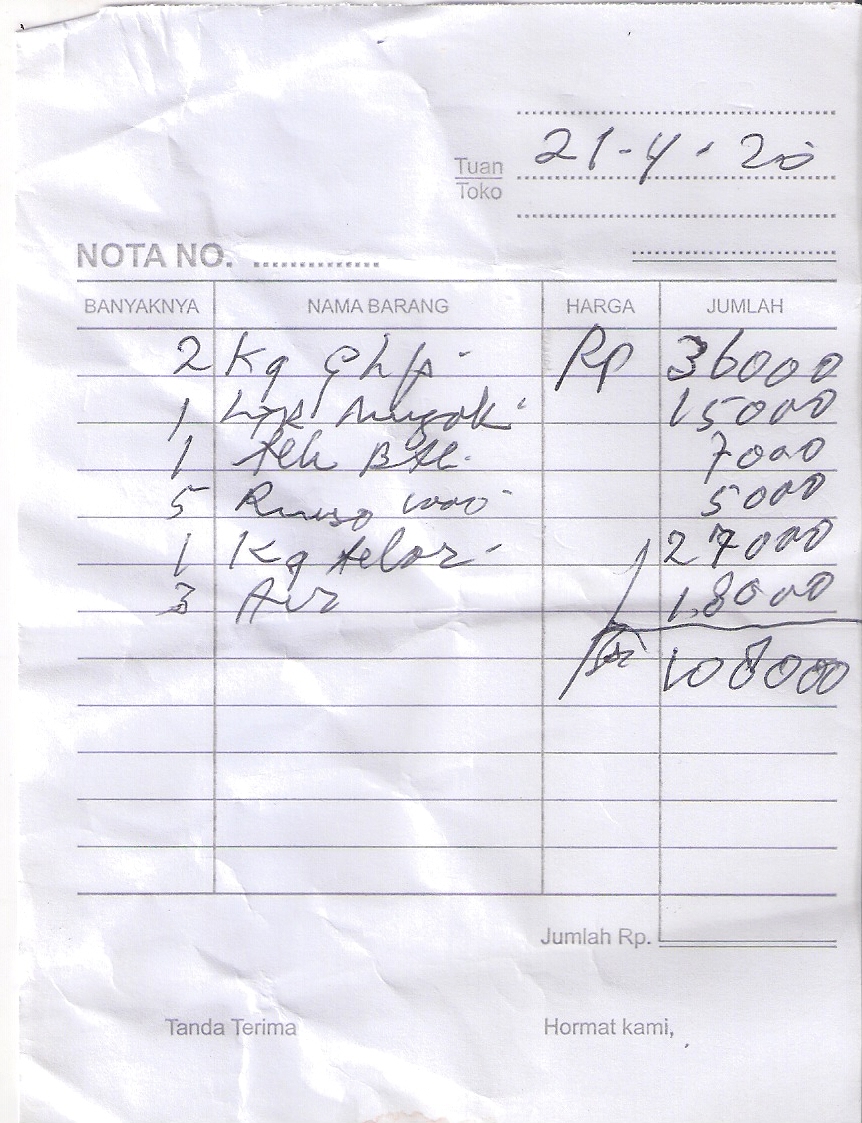 21-4-20
Tuan
Toko
NOTA NO. ................
BANYAKNYA NAMA BARANG HARGA JUMLAH
2 Kg Rp 36000
1 15000
1 teh Btl. 7000
5 Rinso 1000 5000
1 Kg telor 27000
3 Air 18000
108000
Jumlah Rp.
Tanda Terima Hormat kami,